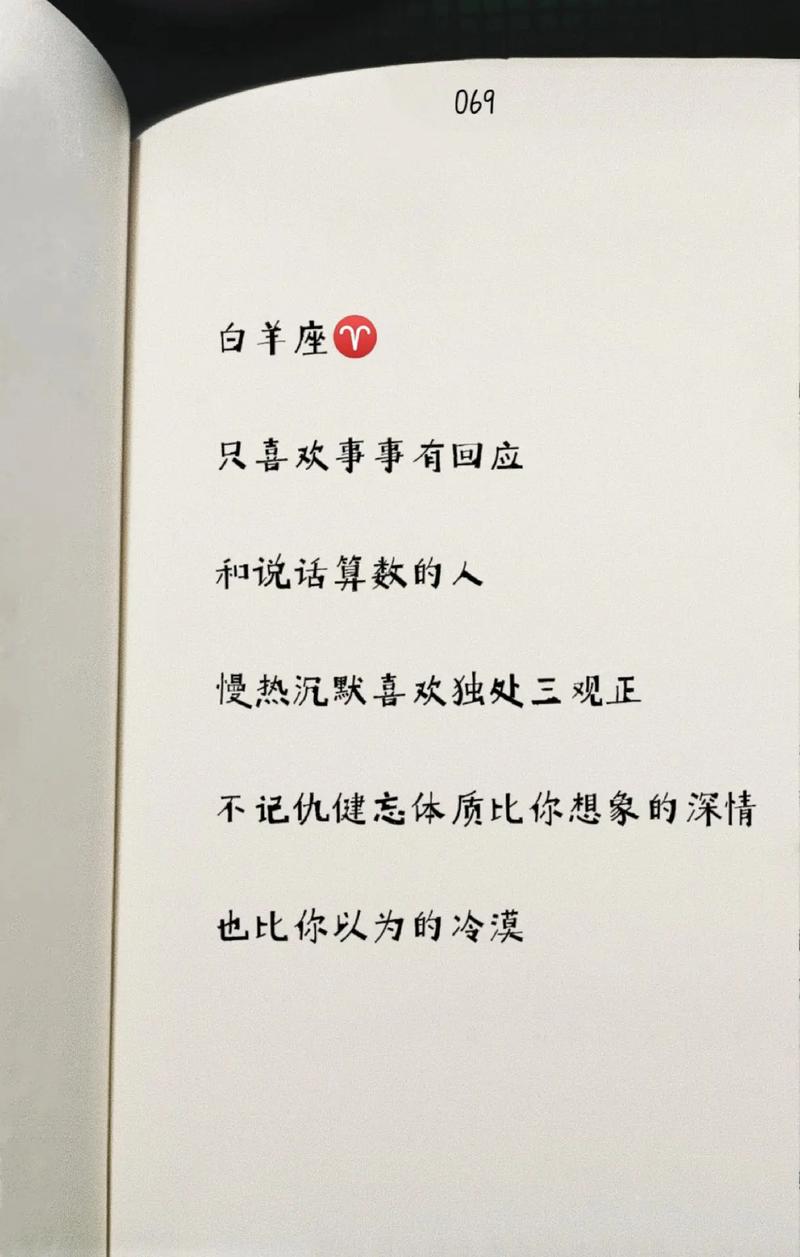 069
白羊座♈
只喜欢事事有回应
和说话算数的人
慢热沉默喜欢独处三观正
不记仇健忘体质比你想象的深情
也比你以为的冷漠